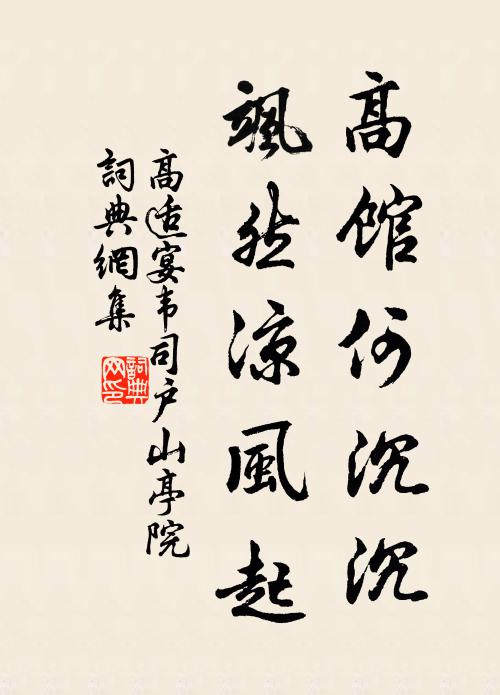 高館何沉沉
颯然涼風起
高适宴韦司户山亭院
詞典網集
詞典网印